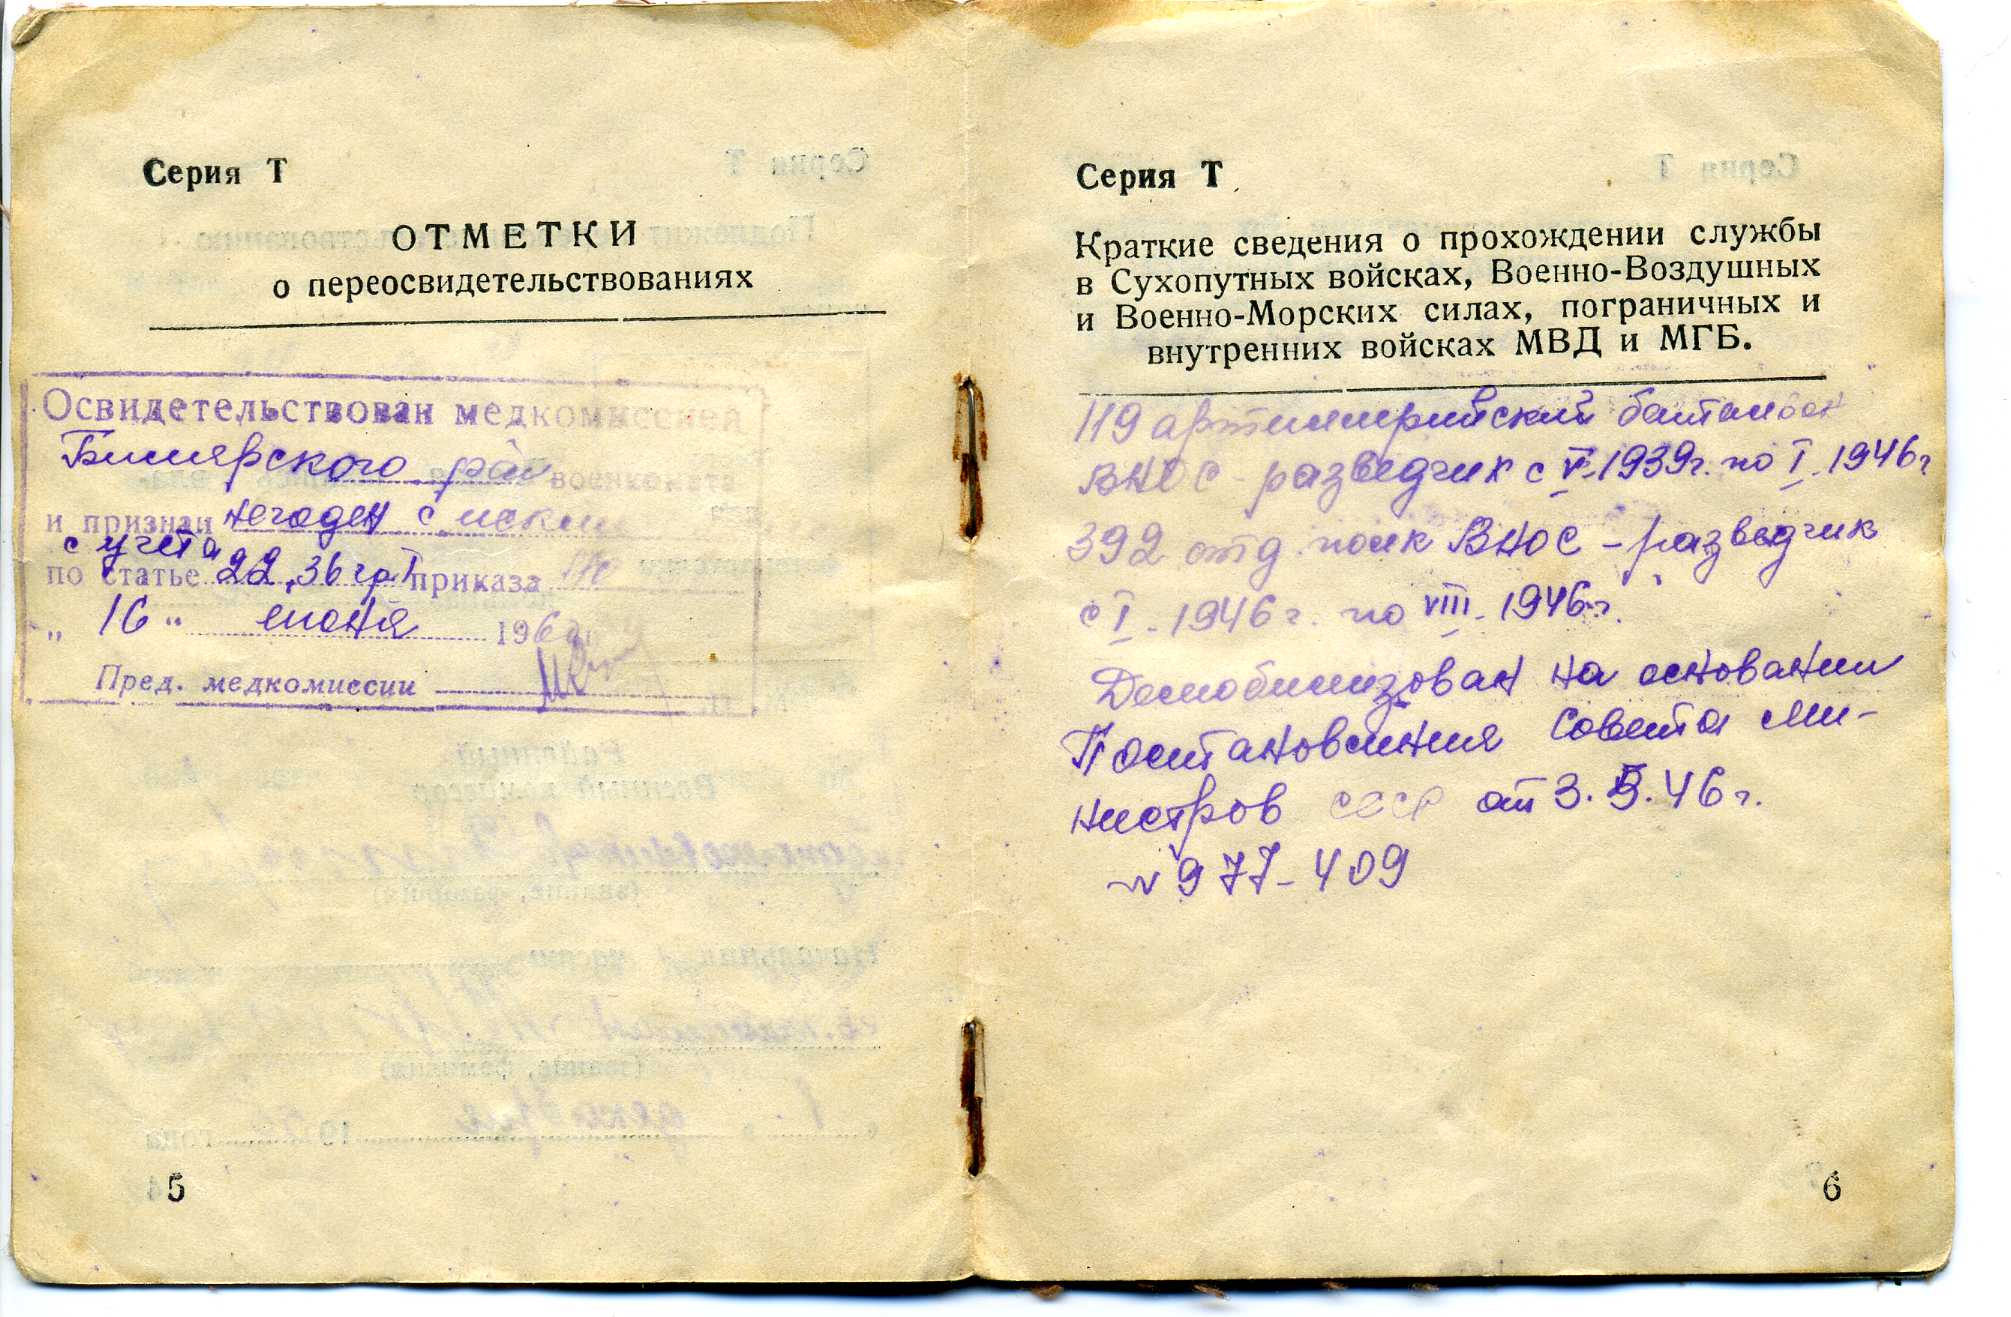 Серия Т
ОТМЕТКИ
о переосвидетельствованиях
Освидетельствован медкомиссией
Билярского рай военкомата
и признан негоден с искл
с учета
по статье 22, 36 гр I приказа
„ 16 “ июня 196
Пред. медкомиссии
5
Серия Т
Краткие сведения о прохождении службы
в Сухопутных войсках, Военно-Воздушных
и Военно-Морских силах, пограничных и
внутренних войсках МВД и МГБ.
119 артиллерийский батальон
ВНОС - разведчик с V. 1939г. по I. 1946г
392 отд. полк ВНОС – разведчик
с I. 1946г. по VIII. 1946г.
Демобилизован на основании
Постановления Совета Ми-
нистров СССР от 3. 46г.
№ 977-409
6